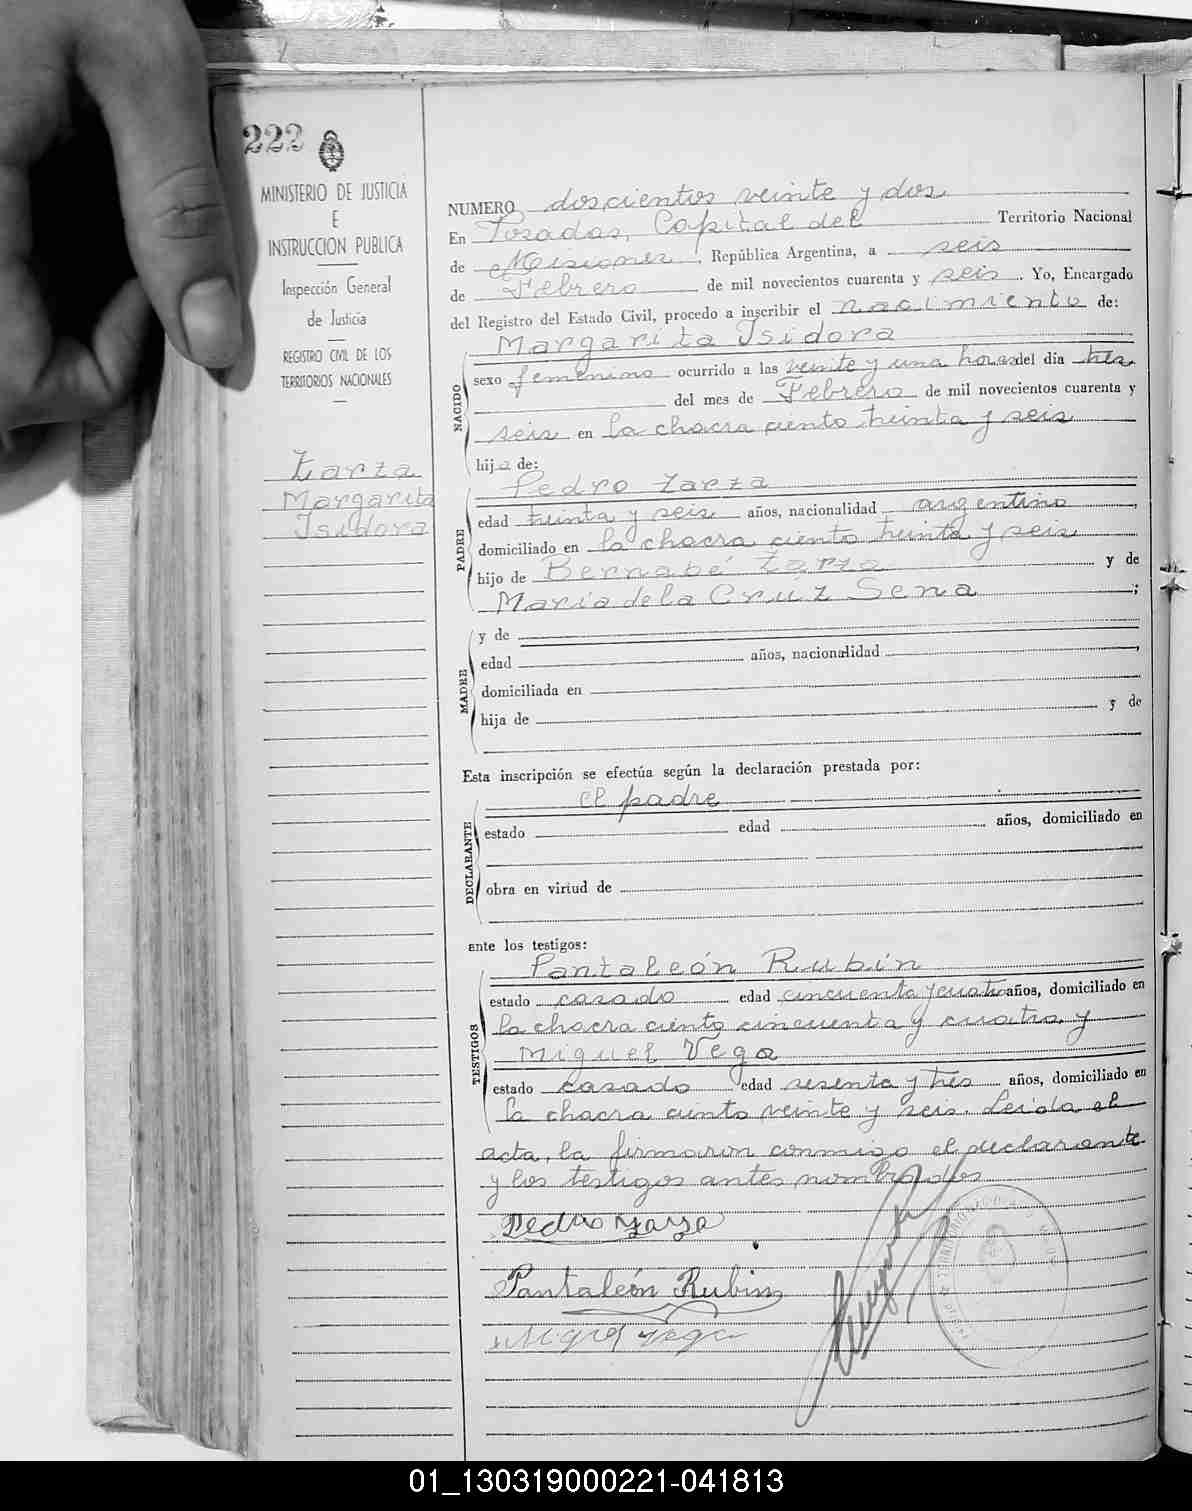 222
MINISTERIO DE JUSTICIA
E
INSTRUCCION PUBLICA
Inspección General
de Justicia
REGISTRO CIVIL DE LOS
TERRITORIOS NACIONALES
Zarza
Margarita
Isidora
NUMERO doscientos veinte y dos
En Posadas, Capital del Territorio Nacional
de Misiones, República Argentina, a seis
de Febrero de mil novecientos cuarenta y seis. Yo, Encargado
del Registro del Estado Civil, procedo a inscribir el nacimiento de:
NACIDO
Margarita Isidora
sexo femenino ocurrido a las veinte y una horas del día tres
del mes de Febrero de mil novecientos cuarenta y
seis en la chacra ciento treinta y seis
hija de:
PADRE
Pedro Zarza
edad treinta y seis años, nacionalidad argentino,
domiciliado en la chacra ciento treinta y seis
hijo de Bernabé Zarza y de
María de la Cruz Sena;
MADRE
y de
edad años, nacionalidad ,
domiciliada en
hija de y de
Esta inscripción se efectúa según la declaración prestada por:
DECLARANTE
el padre
estado edad años, domiciliado en
obra en virtud de
ante los testigos:
TESTIGOS
Pantaleón Rubin
estado casado edad cincuenta y cuatro años, domiciliado en
la chacra ciento cincuenta y cuatro y
Miguel Vega
estado casado edad sesenta y tres años, domiciliado en
la chacra ciento veinte y seis. Leída el
acta, la firmaron conmigo el declarante
y los testigos antes nombrados
Pedro Zarza
Pantaleón Rubin
Miguel Vega
01_130319000221-041813